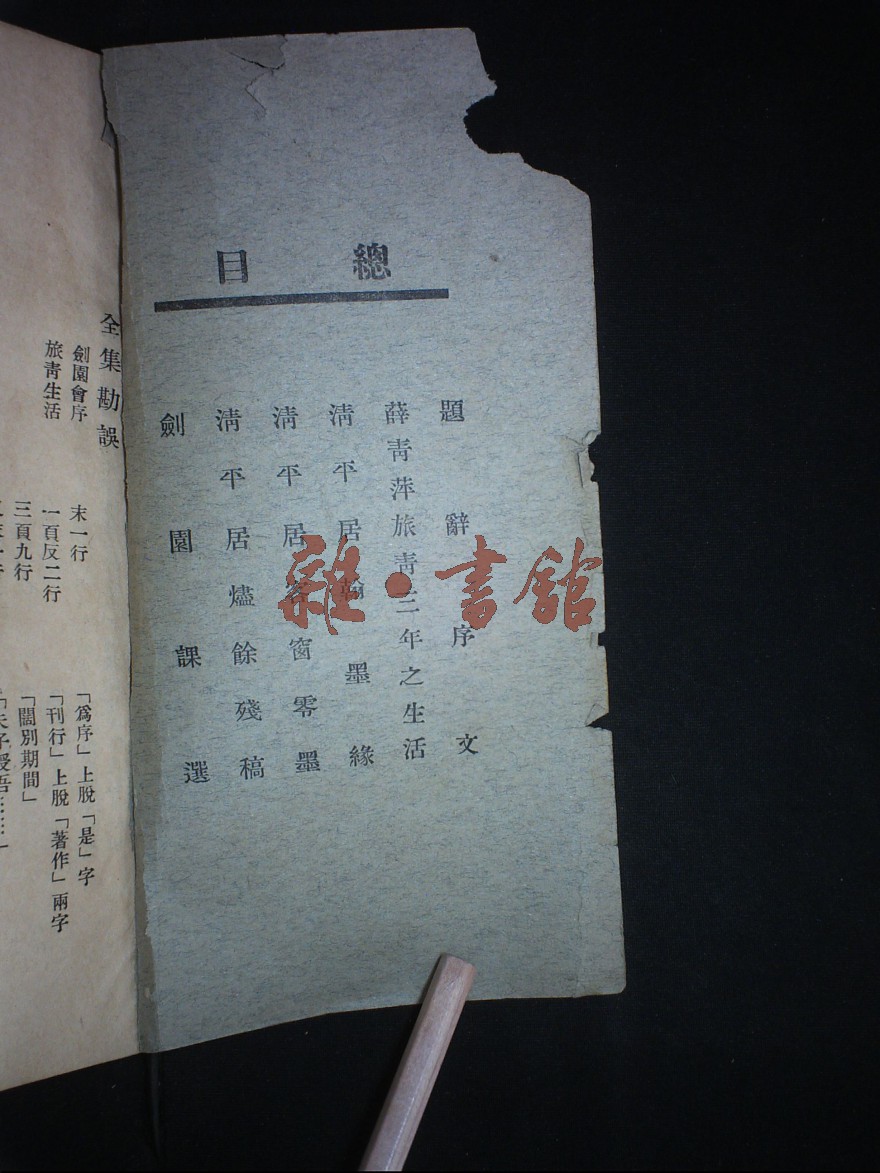 總目
題辭序文
薛青萍旅青三年之生活
清平居翰墨緣
清平居客窗零墨
清平居燼餘殘稿
劍園課選
雜·書館
全集勘誤
劍園會序 末一行 「爲序」上脫「是」字
旅青生活 一頁反二行 「刊行」上脫「著作」兩字
三頁九行 「闊別期間」